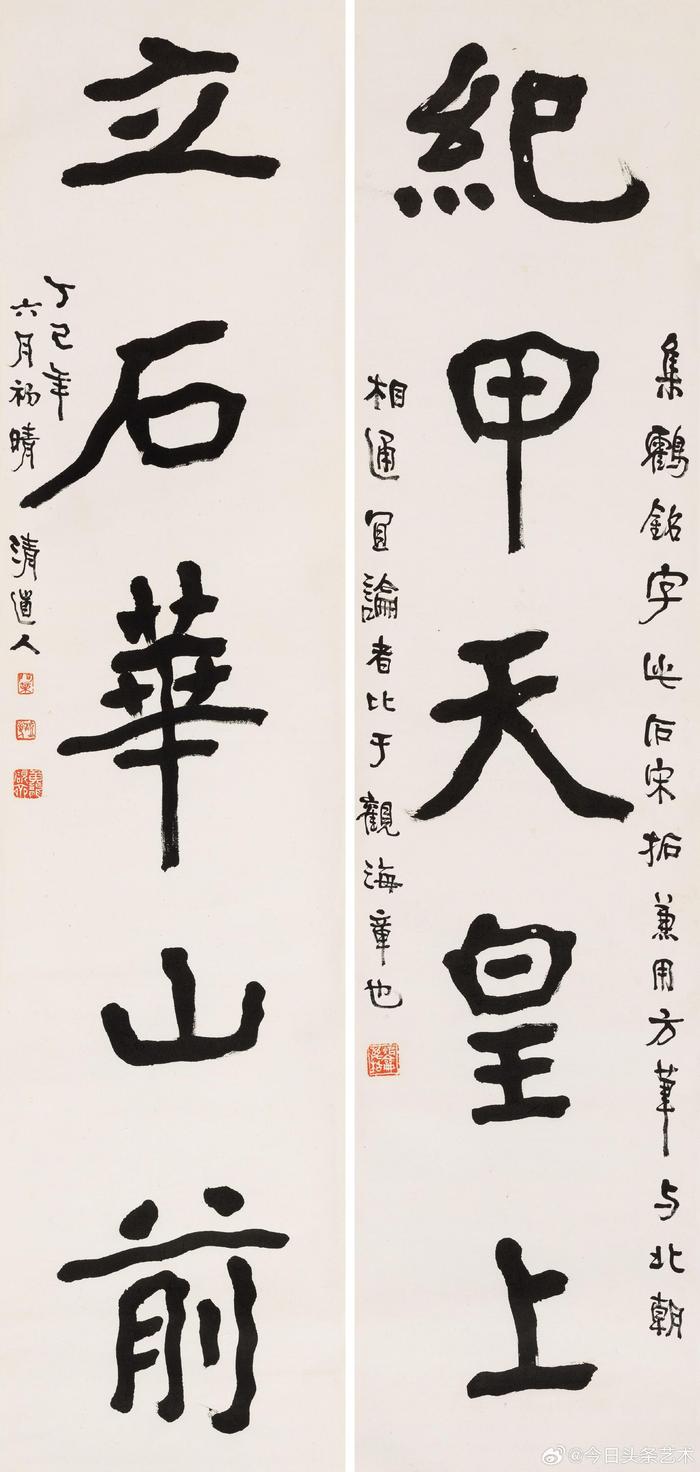 紀甲天皇上
集鶴銘字此石宋拓兼用方筆与北朝
相通宜論者比于觀海童也
立石華山前
丁巳年
六月初晴 清道人
@今日头条艺术